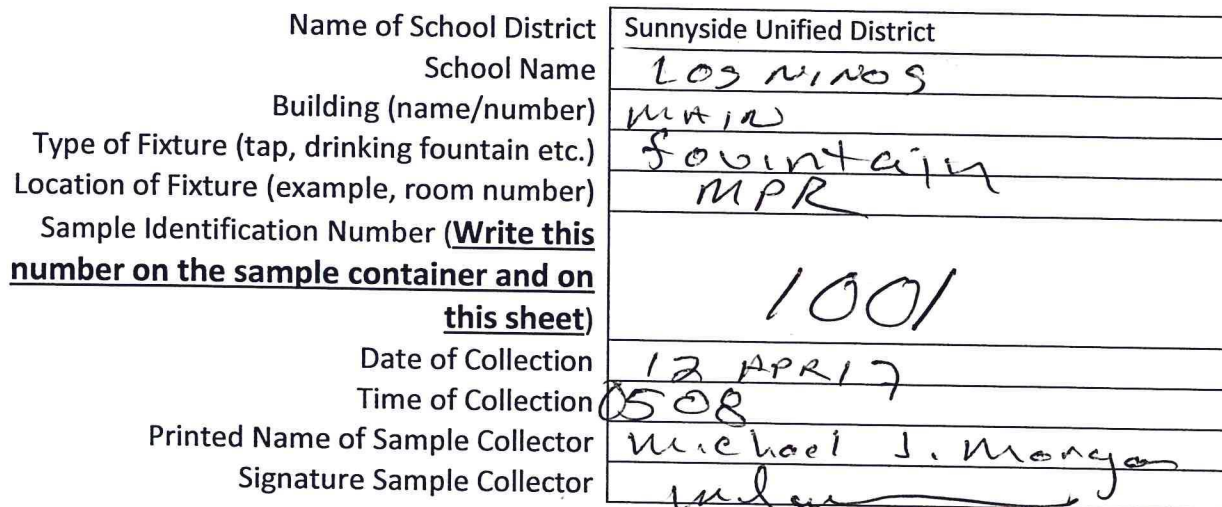 Name of School District Sunnyside Unified District
School Name LOS NINOS
Building (name/number) MAIN
Type of Fixture (tap, drinking fountain etc.) fountain
Location of Fixture (example, room number) MPR
Sample Identification Number (Write this
number on the sample container and on
this sheet) 1001
Date of Collection 12 APR 17
Time of Collection 0508
Printed Name of Sample Collector Michael J. Morgan
Signature Sample Collector